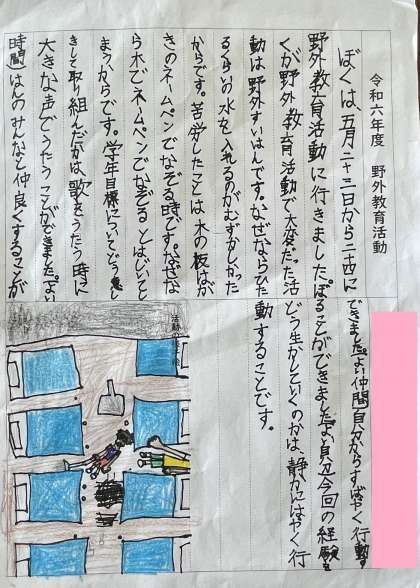 令和六年度　野外教育活動
ぼくは、五月二十三日から二十四に
野外教育活動に行きました。ぼ
くが野外教育活動で大変だった活
動は野外すいはんです。なぜならひた
るくらいの水を入れるのがむずかしかった
からです。苦労したことは木の板はが
きのネームペンでなぞる時です。なぜな
ら木でネームペンでなぞるとはじいてし
まうからです。学年目標についてどう意し
きして取り組んだかは、歌をうたう時に
大きな声でうたうことができました。よい
時間はんのみんなと仲良くすることが
できました。よい仲間自分からすばやく行動す
ることができました。よい 今回の経験を
どう生かしていくのかは、静かにはやく行
動することです。